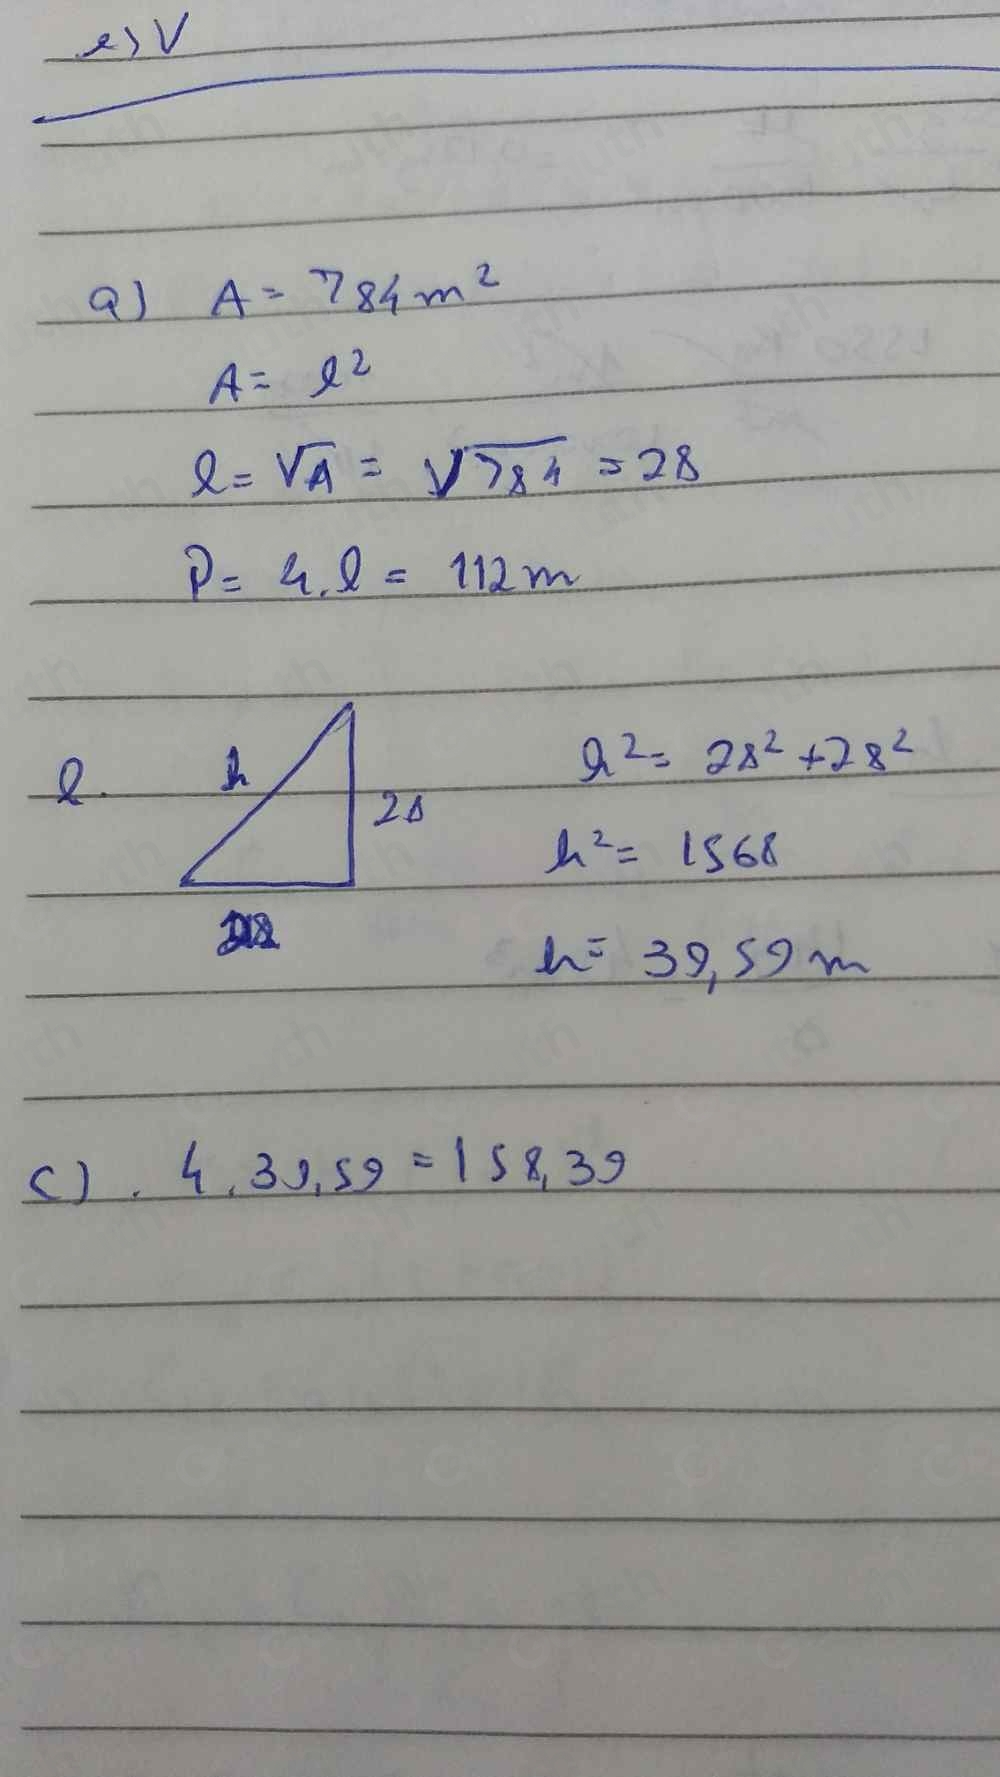 e) V
a) A = 784 m²
A = l²
l = √A = √784 = 28
P = 4.l = 112 m
l.
h
28
h² = 28² + 28²
h² = 1568
h = 39,59 m
c). 4. 39,59 = 158,39